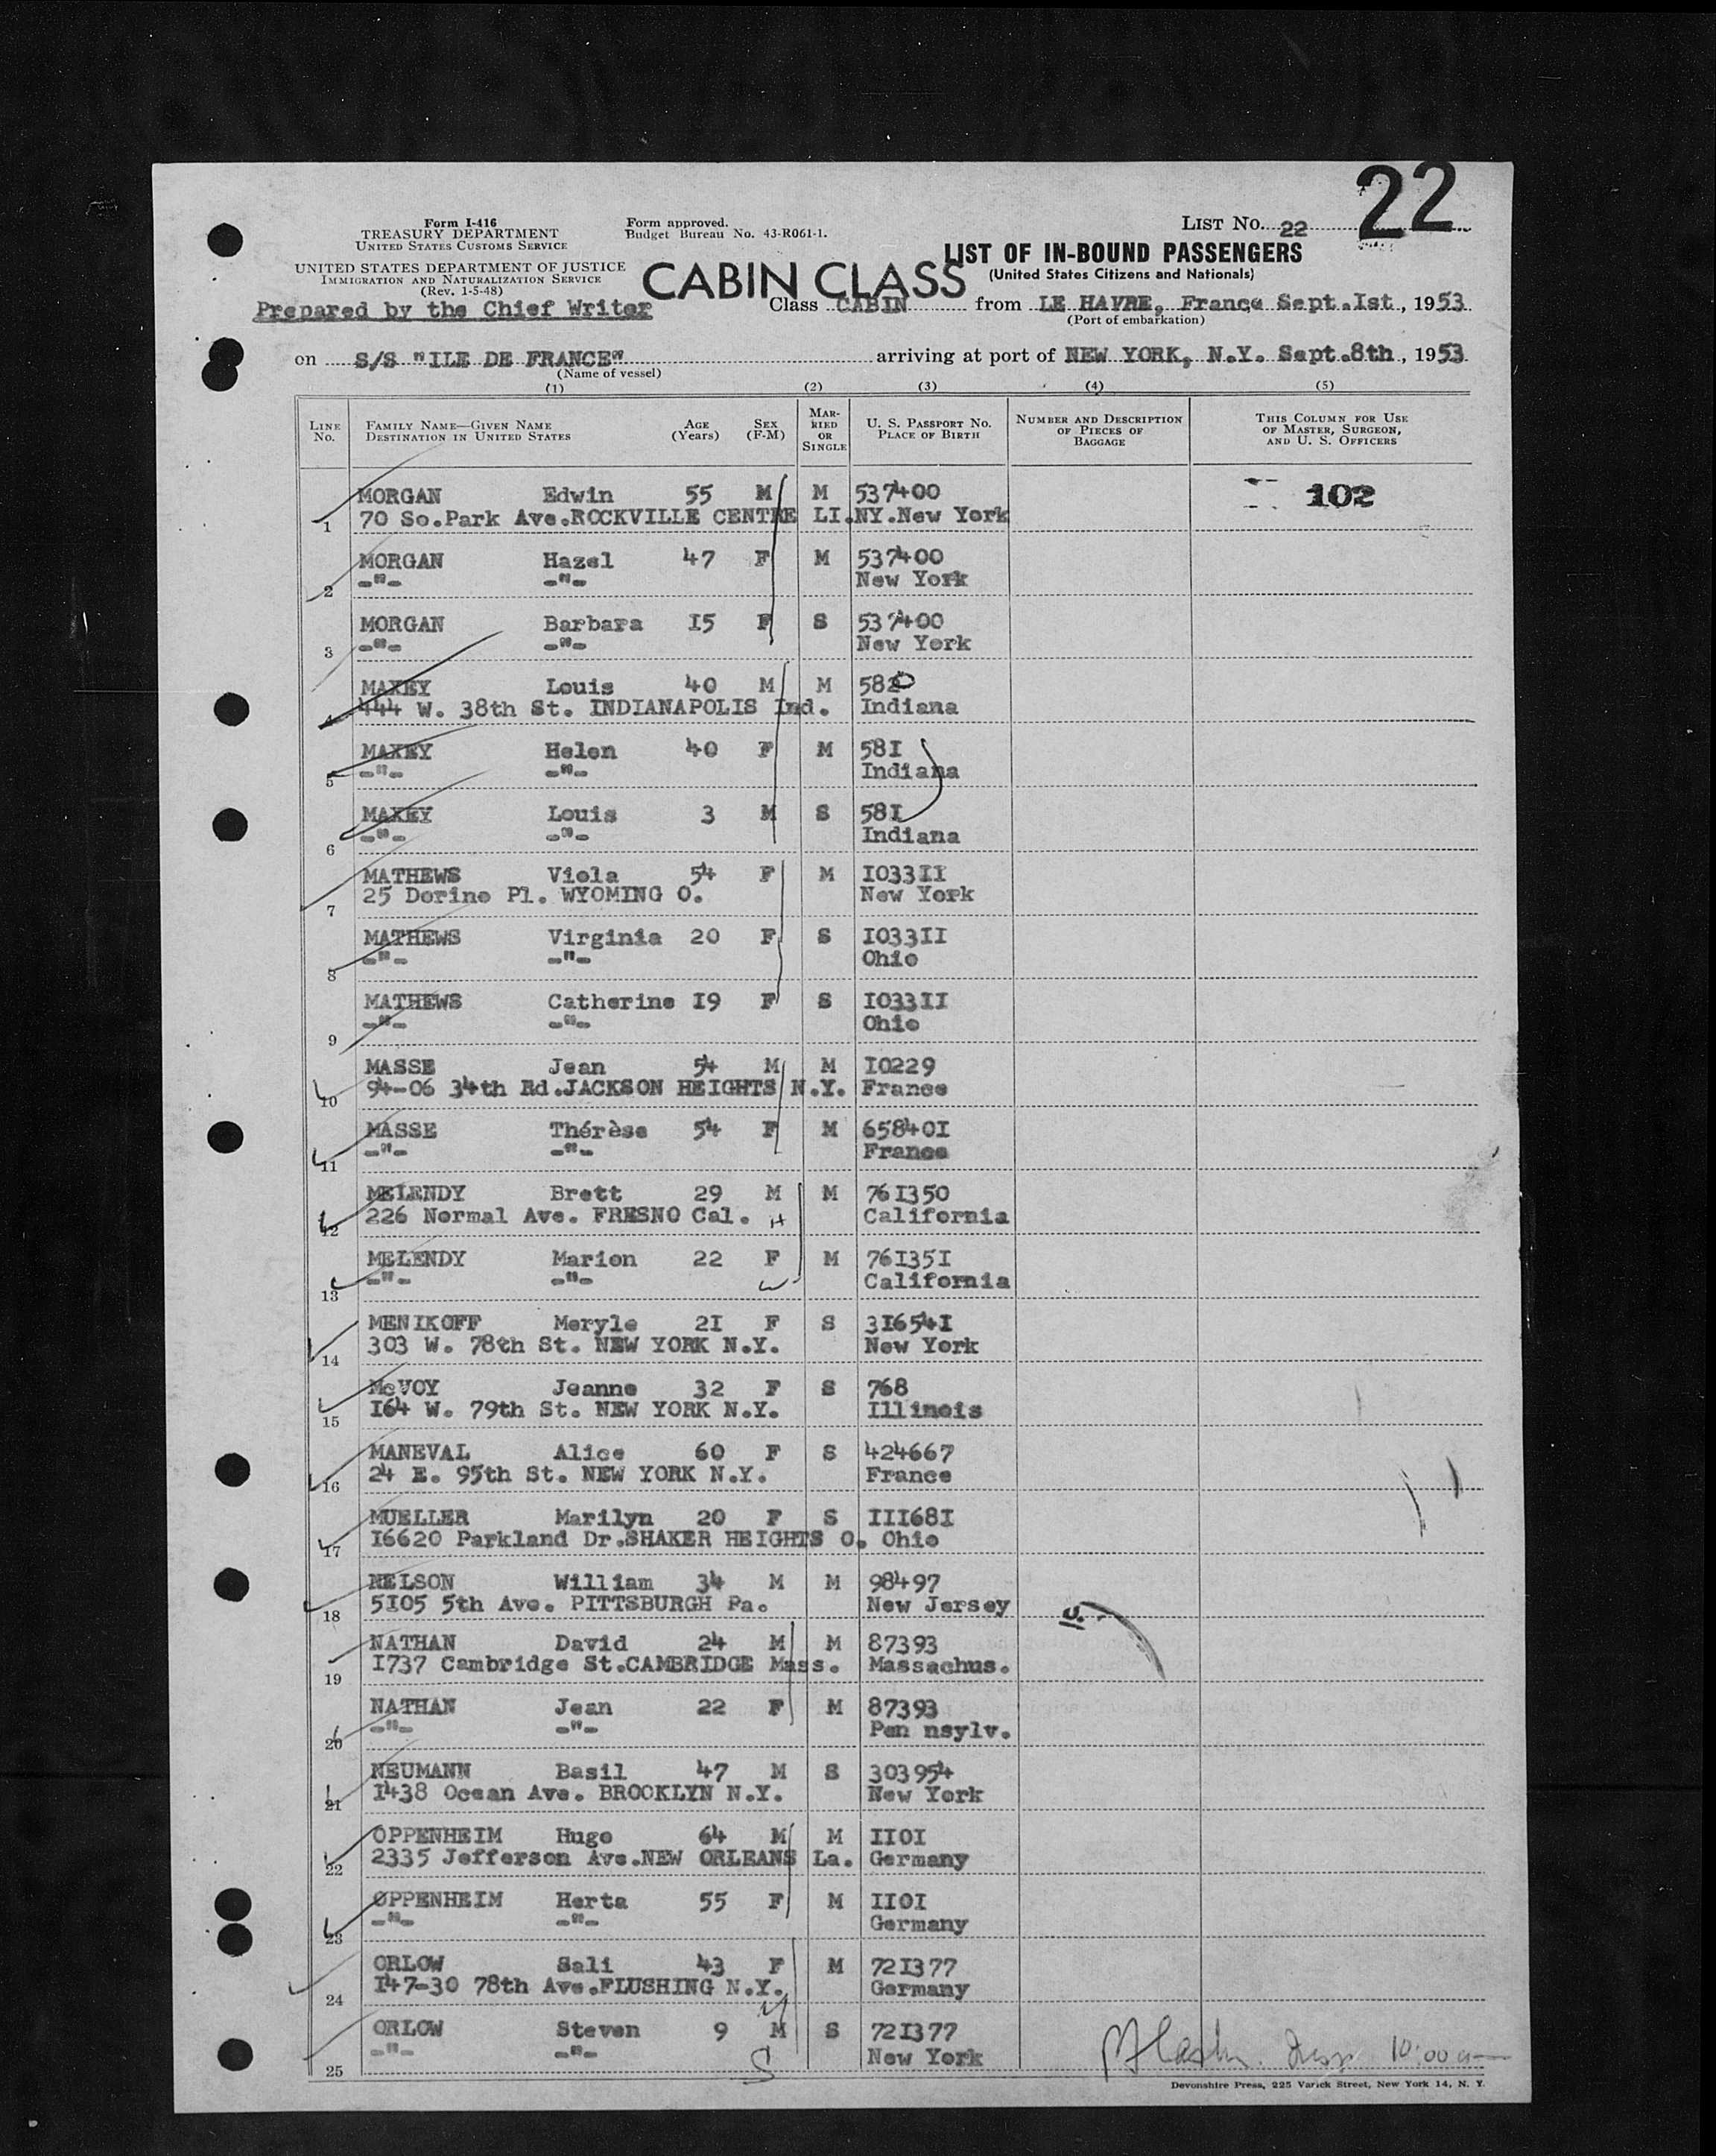 22
Form I-416
TREASURY DEPARTMENT
UNITED STATES CUSTOMS SERVICE
UNITED STATES DEPARTMENT OF JUSTICE
IMMIGRATION AND NATURALIZATION SERVICE
(Rev. 1-5-48)
Prepared by the Chief Writer
Form approved.
Budget Bureau No. 43-R061-1.
LIST No. 22
LIST OF IN-BOUND PASSENGERS
(United States Citizens and Nationals)
CABIN CLASS
Class CABIN from LE HAVRE, France Sept.Ist., 1953
(Port of embarkation)
on S/S "ILE DE FRANCE" arriving at port of NEW YORK, N.Y. Sept.8th., 1953
(Name of vessel)
(1) (2) (3) (4) (5)
LINE No. FAMILY NAME—GIVEN NAME DESTINATION IN UNITED STATES AGE (Years) SEX (F-M) MARRIED OR SINGLE U. S. PASSPORT NO. PLACE OF BIRTH NUMBER AND DESCRIPTION OF PIECES OF BAGGAGE THIS COLUMN FOR USE OF MASTER, SURGEON, AND U. S. OFFICERS
MORGAN Edwin 55 M M 537400 102
1 70 So.Park Ave.ROCKVILLE CENTRE LI.NY.New York
MORGAN Hazel 47 F M 537400
2 -"- -"- New York
MORGAN Barbara I5 F S 537400
3 -"- -"- New York
MAXEY Louis 40 M M 582
4 444 W. 38th St. INDIANAPOLIS Ind. Indiana
MAXEY Helen 40 F M 58I
5 -"- -"- Indiana
MAXEY Louis 3 M S 58I
6 -"- -"- Indiana
MATHEWS Viola 54 F M I033II
7 25 Dorino Pl. WYOMING O. New York
MATHEWS Virginia 20 F S I033II
8 -"- -"- Ohio
MATHEWS Catherine I9 F S I033II
9 -"- -"- Ohio
MASSE Jean 54 M M I0229
10 94-06 34th Rd.JACKSON HEIGHTS N.Y. France
MASSE Thérèse 54 F M 65840I
11 -"- -"- France
MELENDY Brett 29 M M 76I350
12 226 Normal Ave. FRESNO Cal. H California
MELENDY Marion 22 F M 76I35I
13 -"- -"- W California
MENIKOFF Meryle 2I F S 3I654I
14 303 W. 78th St. NEW YORK N.Y. New York
McVOY Jeanne 32 F S 768
15 I64 W. 79th St. NEW YORK N.Y. Illinois
MANEVAL Alice 60 F S 424667
16 24 E. 95th St. NEW YORK N.Y. France
MUELLER Marilyn 20 F S III68I
17 I6620 Parkland Dr.SHAKER HEIGHTS O. Ohio
NELSON William 34 M M 98497
18 5I05 5th Ave. PITTSBURGH Pa. New Jersey
NATHAN David 24 M M 87393
19 I737 Cambridge St.CAMBRIDGE Mass. Massachus.
NATHAN Jean 22 F M 87393
20 -"- -"- Pen nsylv.
NEUMANN Basil 47 M S 303954
21 I438 Ocean Ave. BROOKLYN N.Y. New York
OPPENHEIM Hugo 64 M M II0I
22 2335 Jefferson Ave.NEW ORLEANS La. Germany
OPPENHEIM Herta 55 F M II0I
23 -"- -"- Germany
ORLOW Sali 43 F M 72I377
24 I47-30 78th Ave.FLUSHING N.Y. Germany
ORLOW Steven 9 M S 72I377
25 -"- -"- S New York
10:00 a
Devonshire Press, 225 Varick Street, New York 14, N. Y.